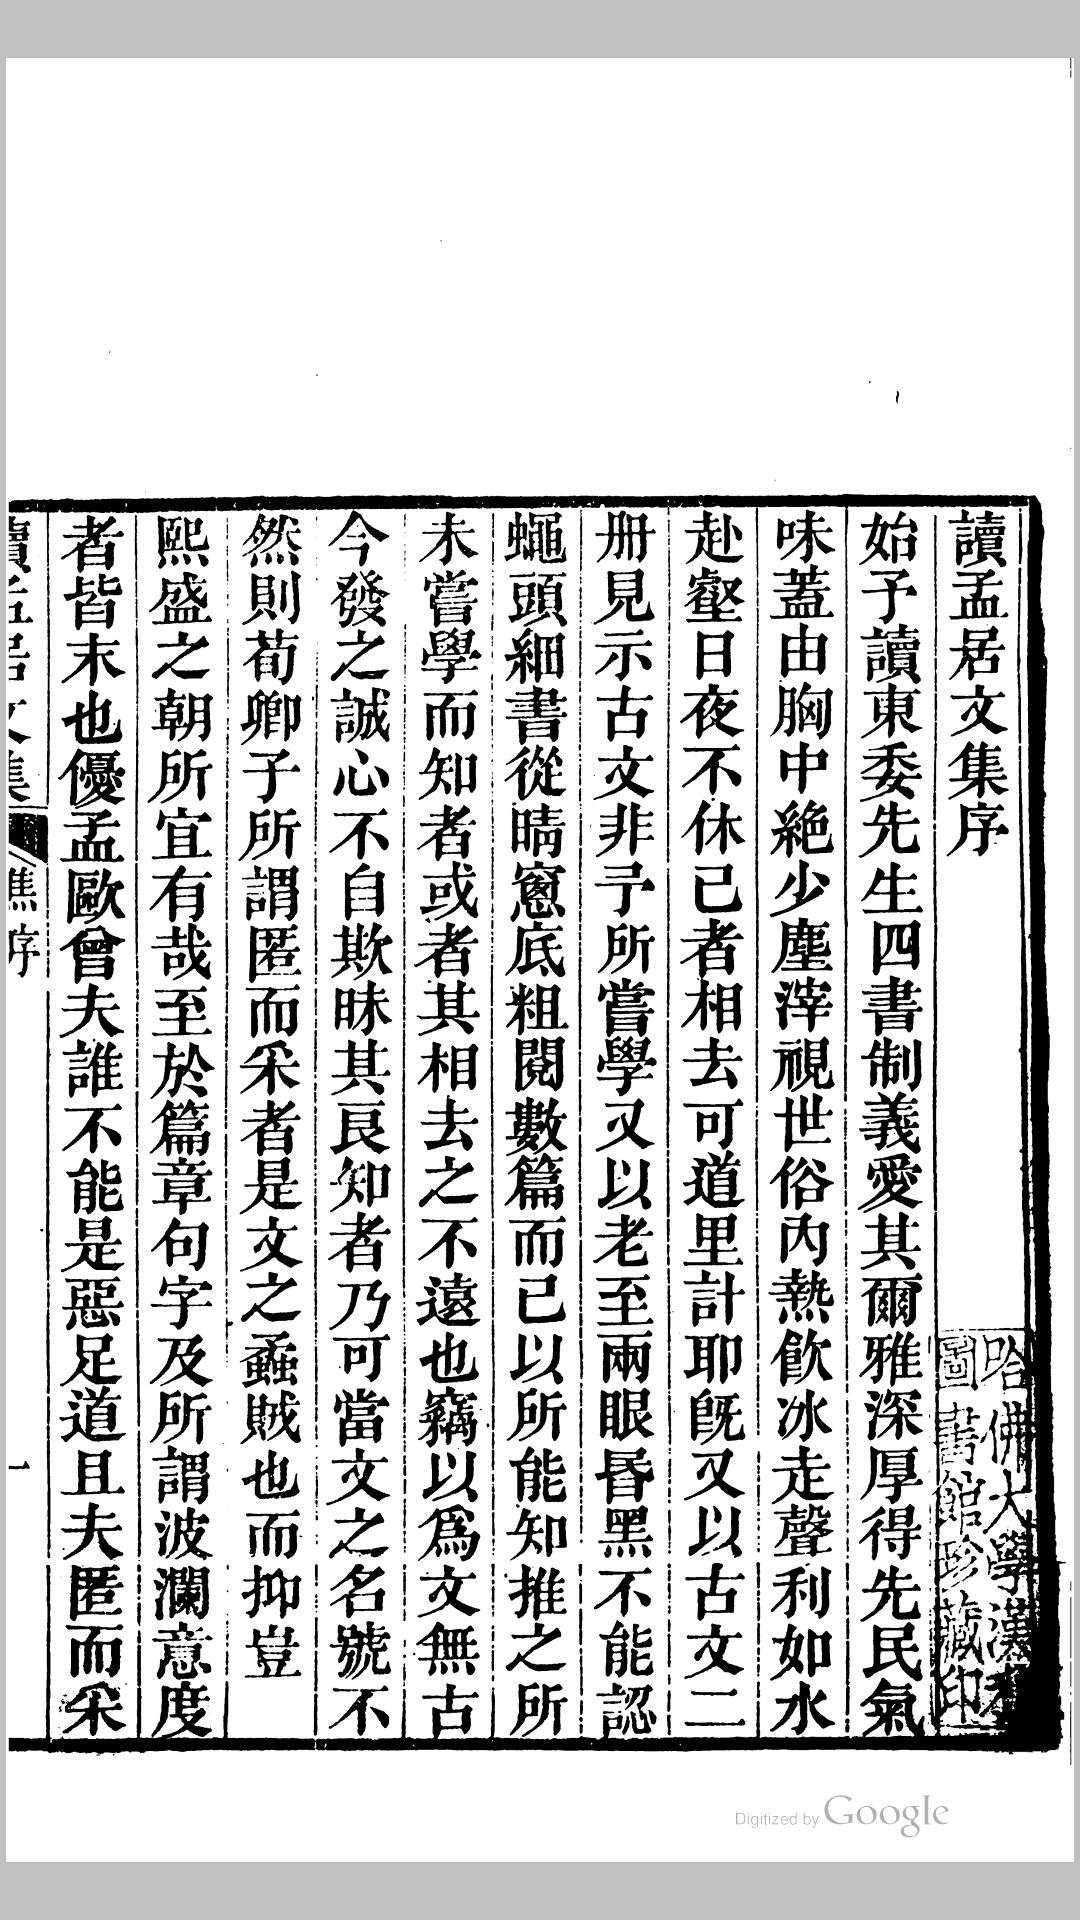 讀孟居文集序
始予讀東委先生四書制義愛其爾雅深厚得先民氣
味蓋由胸中絶少塵滓視世俗內熱飲冰走聲利如水
赴壑日夜不休已者相去可道里計耶旣又以古文二
册見示古文非予所嘗學又以老至兩眼昬黑不能認
蠅頭細書從晴窻底粗閱數篇而已以所能知推之所
未嘗學而知者或者其相去之不遠也竊以爲文無古
今發之誠心不自欺昧其良知者乃可當文之名號不
然則荀卿子所謂匿而采者是文之蟊賊也而抑豈
熙盛之朝所宜有哉至於篇章句字及所謂波瀾意度
者皆末也優孟歐曾夫誰不能是惡足道且夫匿而采
讀孟居文集
序
一
哈佛大學漢和
圖書館珍藏印
Digitized by Google